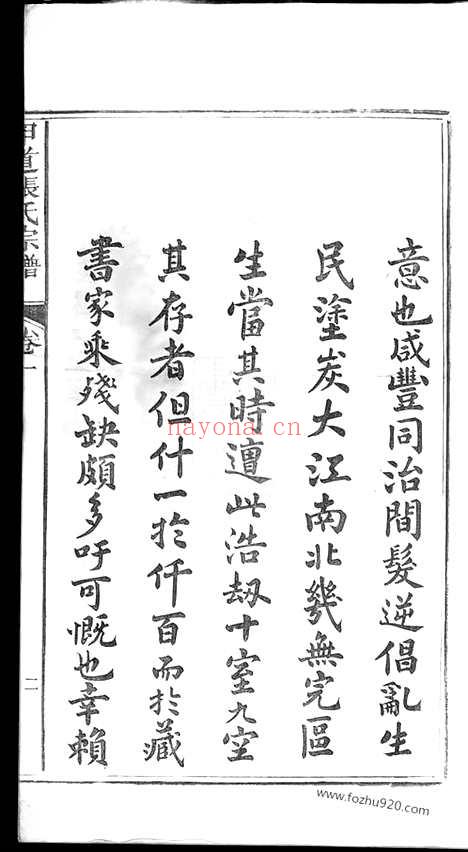 意也咸豐同治間髮逆倡亂生
民塗炭大江南北幾無完區
生當其時遭此浩劫十室九空
其存者但什一於仟百而於藏
書家乘殘缺頗多吁可慨也幸賴
田道張氏宗譜
卷一
二
nayona.cn
www.fozhu920.com